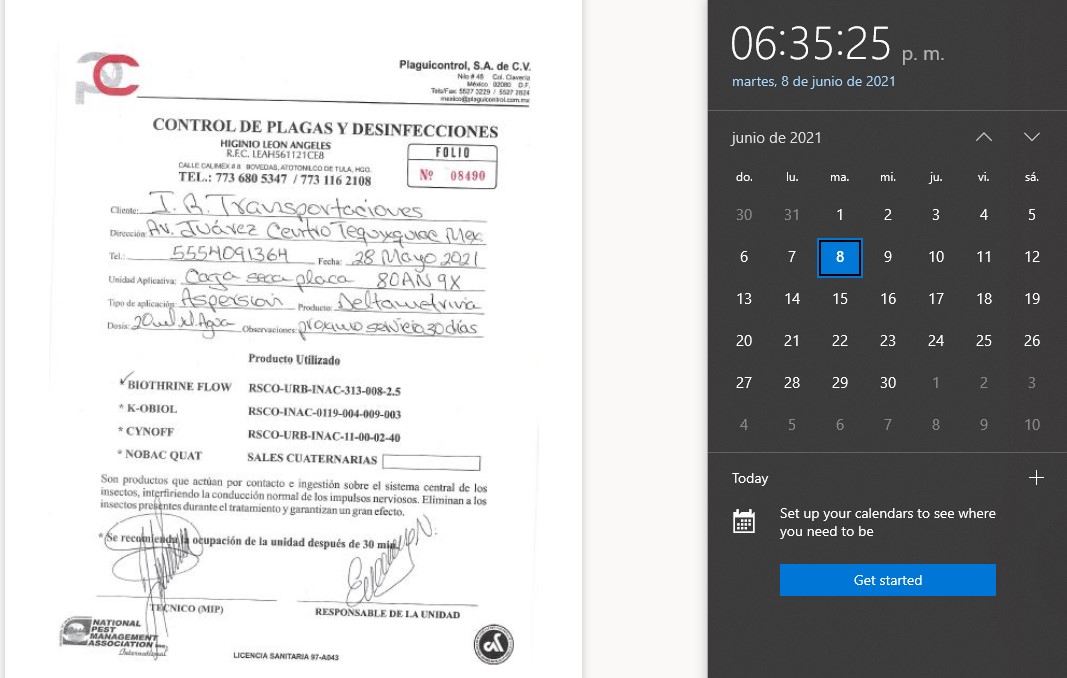 PC
Plaguicontrol, S.A. de C.V.
Nilo # 46 Col. Clavería
México 02080 D.F.
Tels/Fax: 5527 3229 / 5527 2824
mexico@plaguicontrol.com.mx
CONTROL DE PLAGAS Y DESINFECCIONES
HIGINIO LEON ANGELES
R.F.C. LEAH561121CE8
CALLE CALIMEX # 8 BOVEDAS, ATOTONILCO DE TULA, HGO.
TEL.: 773 680 5347 / 773 116 2108
FOLIO
Nº 08490
Cliente: I.R. Transportaciones
Dirección: Av. Juárez Centro Tequixquiac Mex
Tel.: 5554091364 Fecha: 28 Mayo 2021
Unidad Aplicativa: Caja seca placa 80AN9X
Tipo de aplicación: Aspersion Producto: Deltametrivia
Dosis: 20ml xl. Agua Observaciones: proximo servicio 30 días
Producto Utilizado
✓BIOTHRINE FLOW RSCO-URB-INAC-313-008-2.5
* K-OBIOL RSCO-INAC-0119-004-009-003
* CYNOFF RSCO-URB-INAC-11-00-02-40
* NOBAC QUAT SALES CUATERNARIAS
Son productos que actúan por contacto e ingestión sobre el sistema central de los
insectos, interfiriendo la conducción normal de los impulsos nerviosos. Eliminan a los
insectos presentes durante el tratamiento y garantizan un gran efecto.
* Se recomienda la ocupación de la unidad después de 30 min.
TECNICO (MIP)
RESPONSABLE DE LA UNIDAD
NATIONAL
PEST
MANAGEMENT
ASSOCIATION inc.
International
LICENCIA SANITARIA 97-A043
06:35:25 p. m.
martes, 8 de junio de 2021
junio de 2021
do. lu. ma. mi. ju. vi. sá.
30 31 1 2 3 4 5
6 7 8 9 10 11 12
13 14 15 16 17 18 19
20 21 22 23 24 25 26
27 28 29 30 1 2 3
4 5 6 7 8 9 10
Today
Set up your calendars to see where
you need to be
Get started